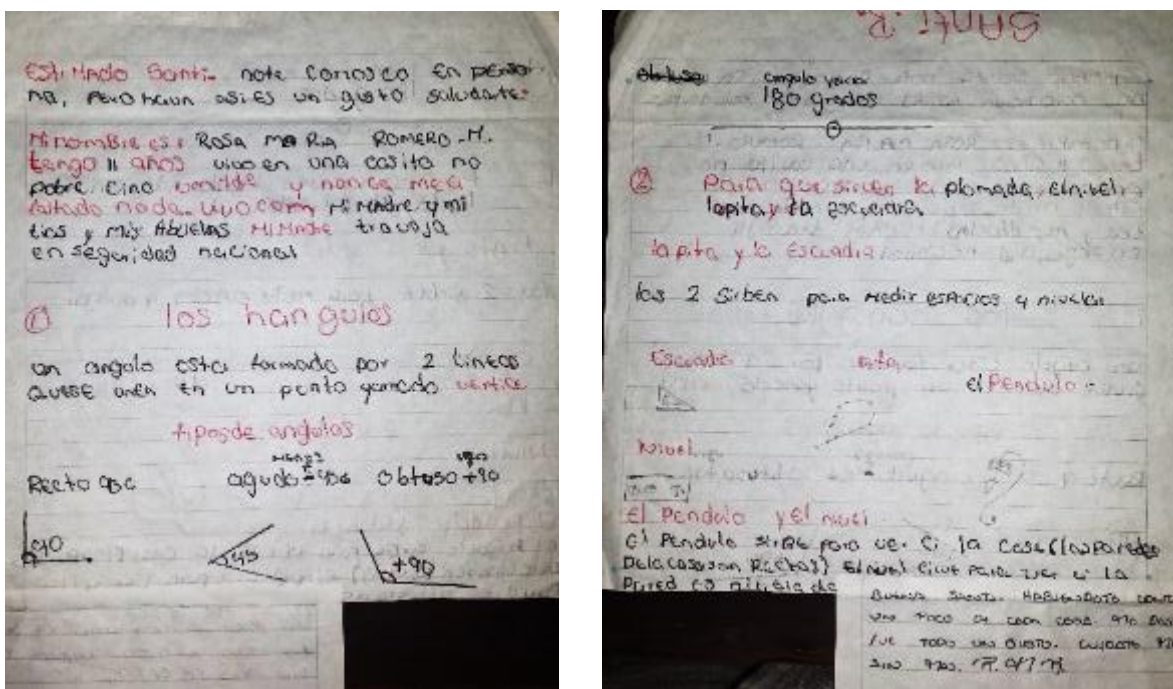 EStiMADo Santi. note conosco En perso-
na, Pero haun asi es un gusto saludarte.
Mi nombre es: ROSA MaRIA ROMERO-M.
tengo 11 años vivo en una casita no
pobre Cino umilde y nonca me a
faltado nada. vivo com Mi Madre y mi
tios y mis Abuelas Mi Madre travaja
en seguridad nacional
① los hangulos
un angulo esta formado por 2 Lineas
QUESE unen En un punto yamado vertice
tipos de angulos
Recto 90° agudo Obtuso +90
90 45 +90
SANTI R.
angulo
180 grados
② Para que sirven la plomada, el nivel,
la pita y la
la pita y la Escuadra
los 2 Sirben para Medir espacios y niveles
Escuadra
el Pendulo
Nivel
El Pendulo y El nivel
El Pendulo SIRBE para ver Ci la Casa (las Paredes
De la casa son Rectas) El nivel Cirve Para ver si la
Pared
CADA COSA.
FUE TODO UN GUSTO.